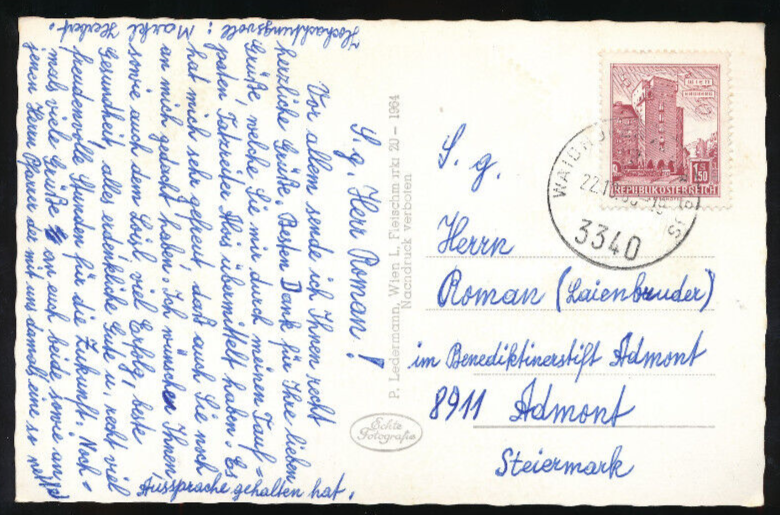 S. g. Herr Roman!
Vor allem sende ich Ihnen recht
herzliche Grüße. Besten Dank für Ihre lieben
Grüße, welche Sie mir durch meinen Tauf-
paten Alois übermittelt haben. Es
hat mich sehr gefreut, daß auch Sie noch
an mich gedacht haben. Ich wünsche Ihnen
sowie auch dem Loisl viel Erfolg, beste
Gesundheit, alles erdenkliche Gute u. recht viel
freudenvolle Stunden für die Zukunft. Noch-
mals viele Grüße an euch beide, sowie an
jenen Herrn Pfarrer der mit uns damals eine so nette
Aussprache gehalten hat.
Hochachtungsvoll: Markl Herbert.
P. Ledermann, Wien I., Fleischmarkt 20 – 1964
Nachdruck verboten
Echte
Fotografie
REPUBLIK ÖSTERREICH
1.50
3340
S. g.
Herrn
Roman (Laienbruder)
im Benediktinerstift Admont
8911 Admont
Steiermark